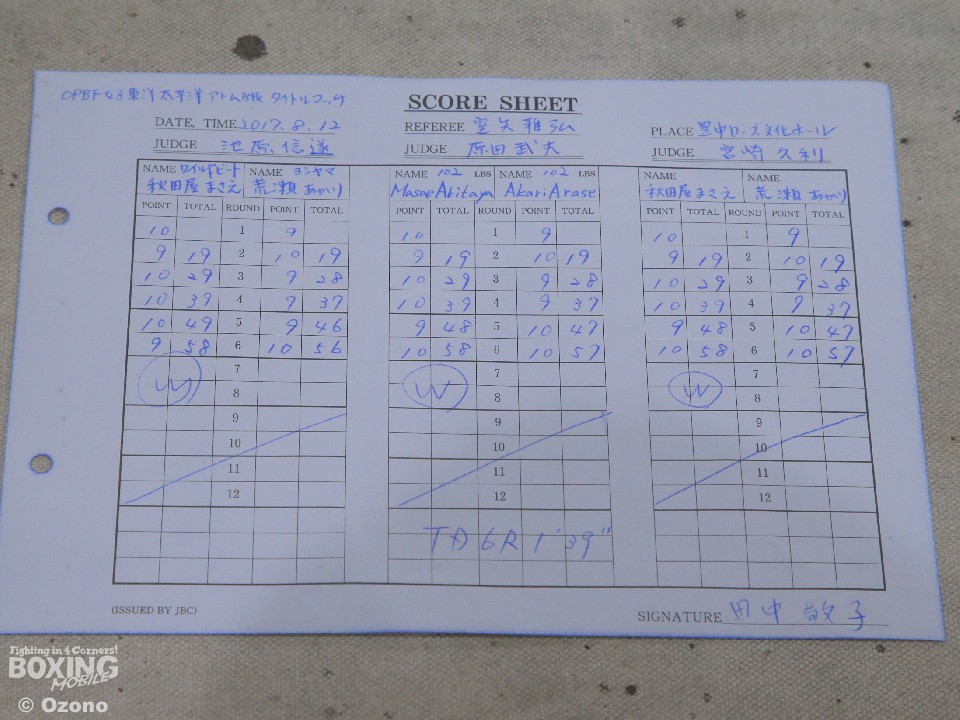 OPBF女子東洋太平洋アトム級 タイトルマッチ
SCORE SHEET
DATE, TIME 2017. 8. 12
REFEREE 室矢雅弘
PLACE 豊中ローズ文化ホール
JUDGE 池原信遂
JUDGE 原田武夫
JUDGE 宮崎久利
NAME ワイルドビート NAME ヨシヤマ
NAME 102 LBS NAME 102 LBS
NAME NAME
秋田屋まさえ 荒瀬あかり
Masae Akitaya Akari Arase
秋田屋まさえ 荒瀬あかり
POINT TOTAL ROUND POINT TOTAL POINT TOTAL ROUND POINT TOTAL POINT TOTAL ROUND POINT TOTAL
10 1 9 10 1 9 10 1 9
9 19 2 10 19 9 19 2 10 19 9 19 2 10 19
10 29 3 9 28 10 29 3 9 28 10 29 3 9 28
10 39 4 9 37 10 39 4 9 37 10 39 4 9 37
10 49 5 9 46 9 48 5 10 47 9 48 5 10 47
9 58 6 10 56 10 58 6 10 57 10 58 6 10 57
W 7 W 7 W 7
8 8 8
9 9 9
10 10 10
11 11 11
12 12 12
TD 6R 1'39"
(ISSUED BY JBC)
SIGNATURE 田中敏子
Fighting in 4 Corners!
BOXING
MOBILE
© Ozono